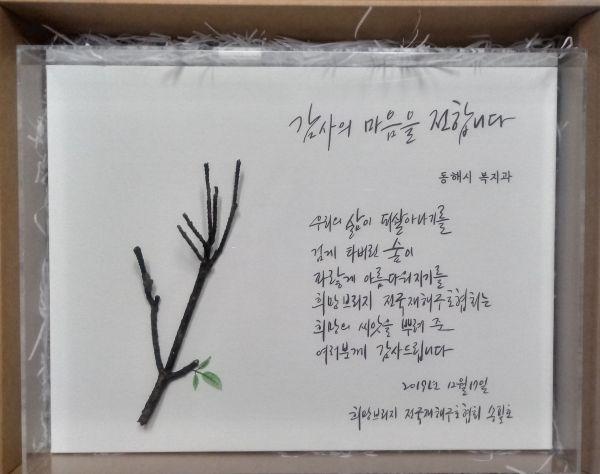 감사의 마음을 전합니다
동해시 복지과
우리의 삶이 되살아나기를
검게 타버린 숲이
파랗게 아름다워지기를
희망브리지 전국재해구호협회는
희망의 씨앗을 뿌려 준
여러분께 감사드립니다
2019년 12월 17일
희망브리지 전국재해구호협회 송필호